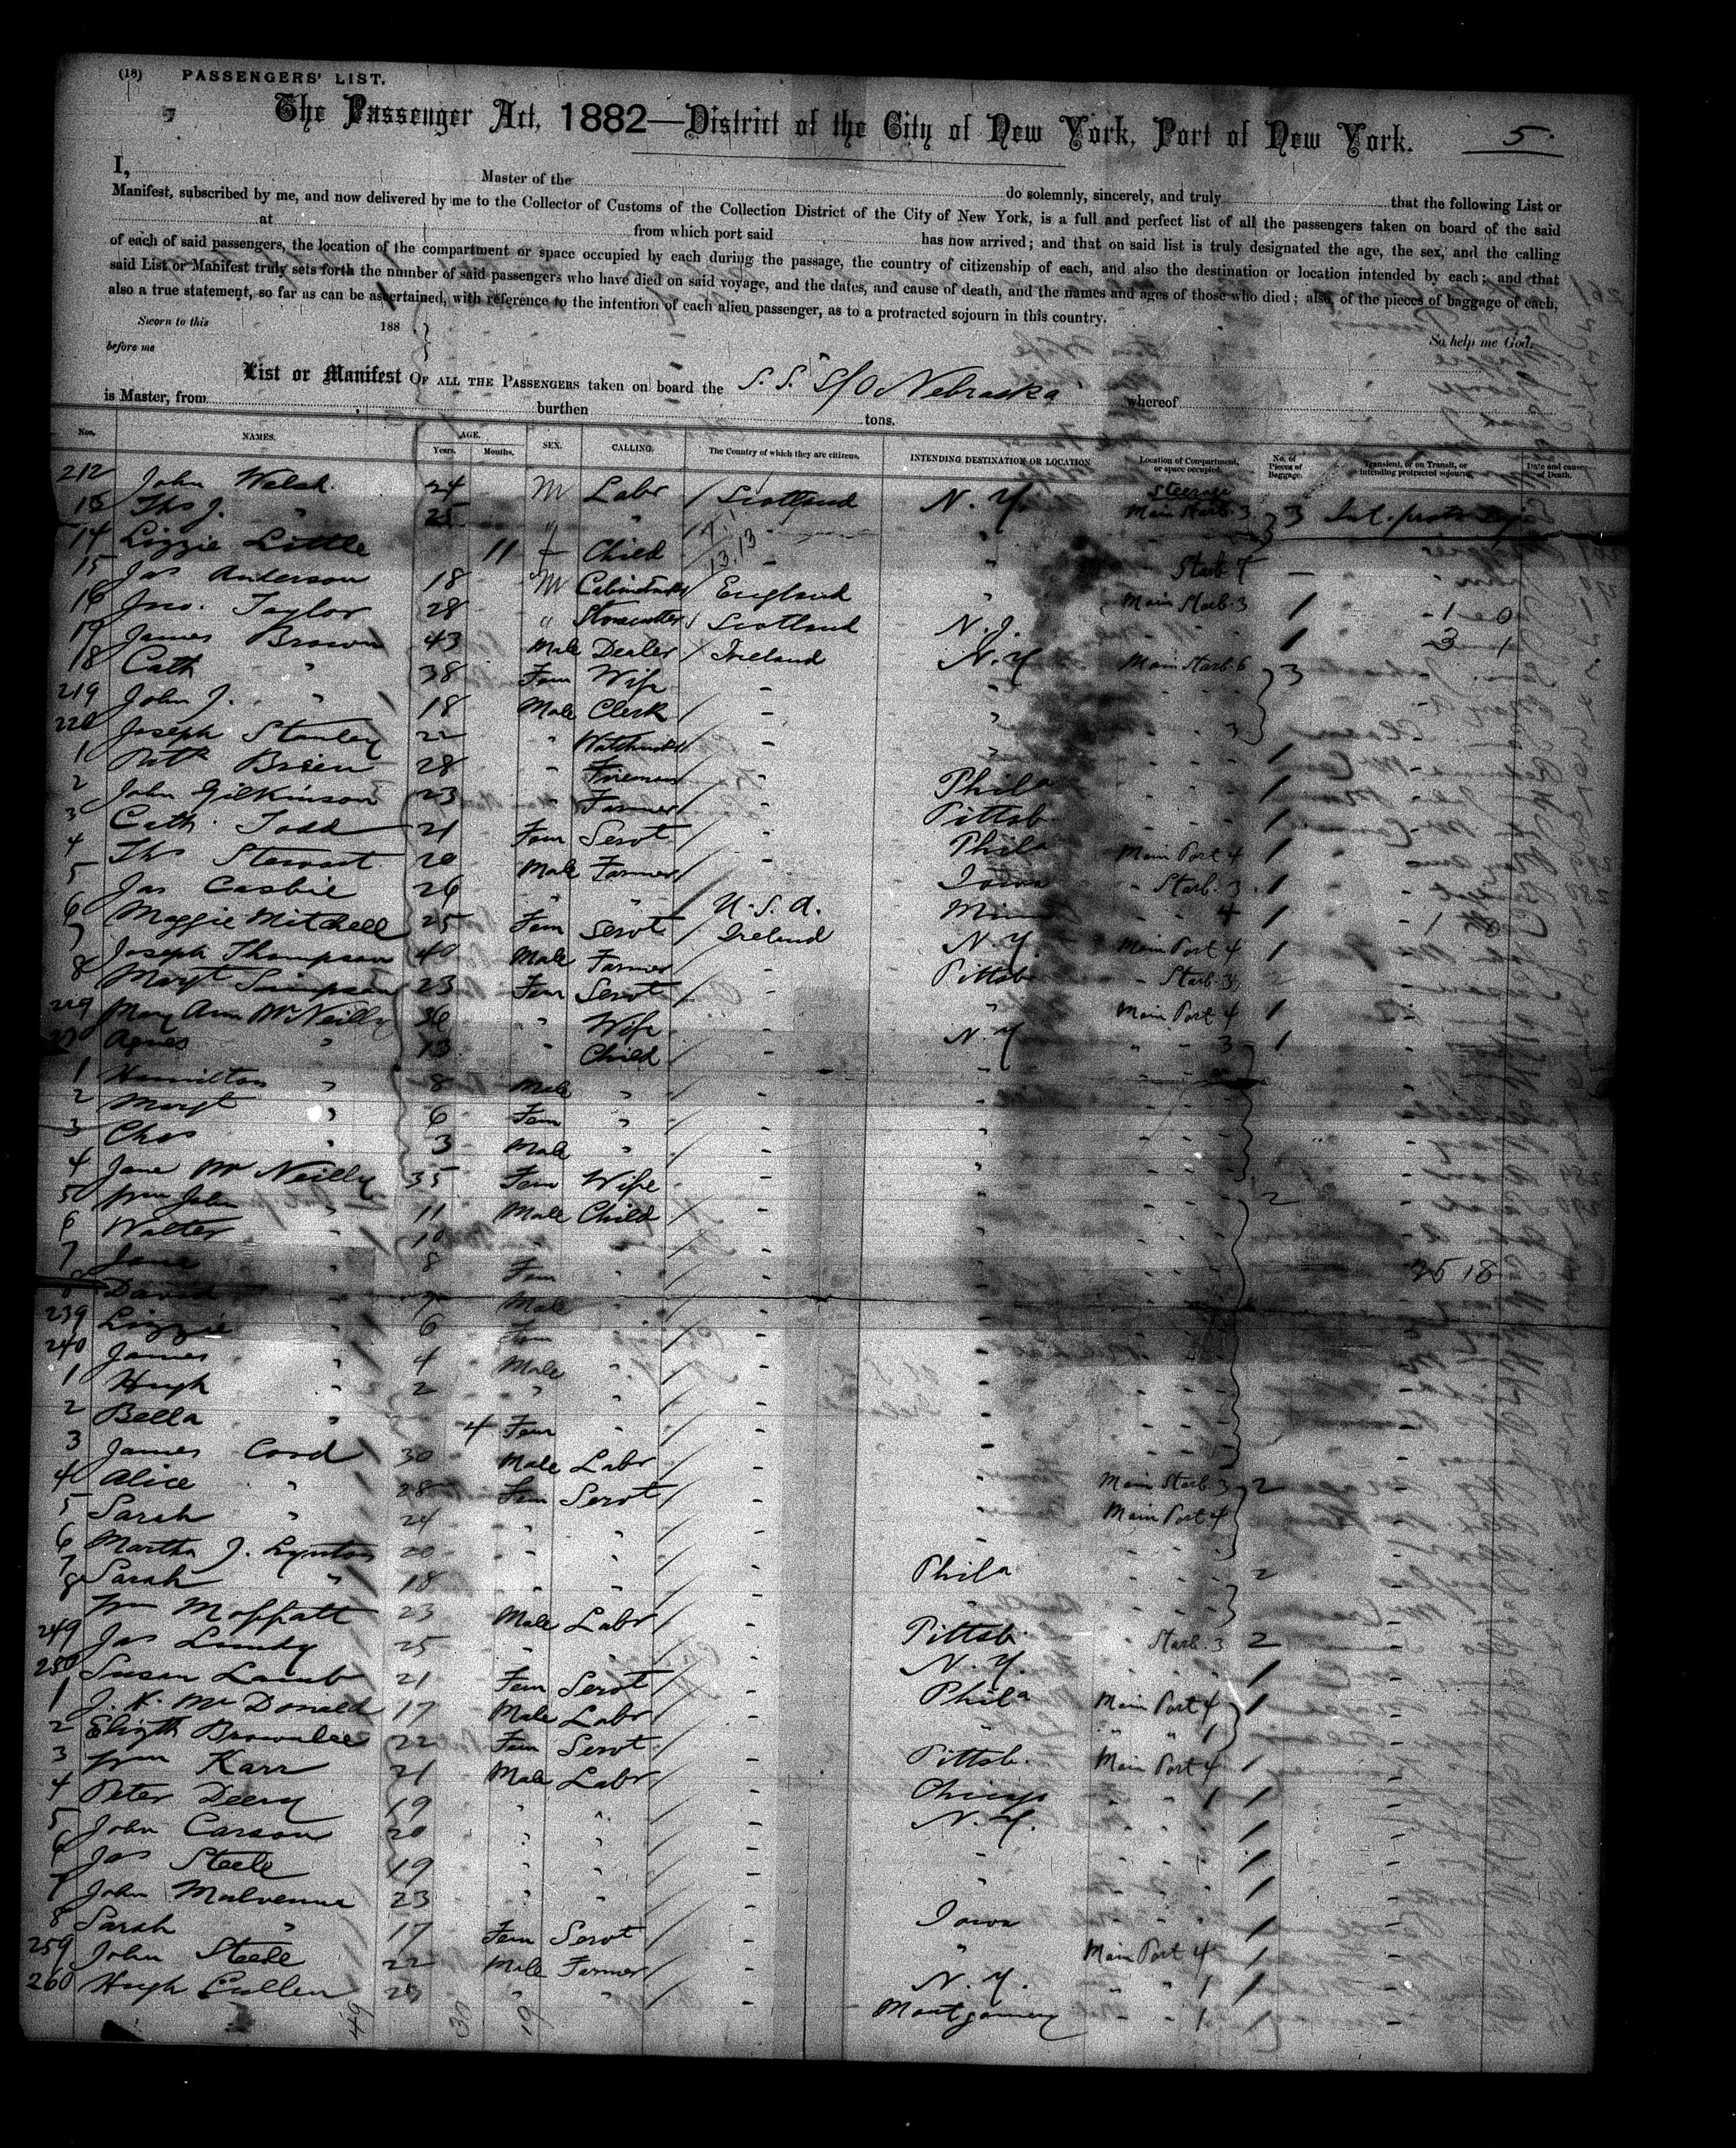 (18) PASSENGERS' LIST.
The Passenger Act, 1882—District of the City of New York, Port of New York. 5.
I, Master of the do solemnly, sincerely, and truly that the following List or
Manifest, subscribed by me, and now delivered by me to the Collector of Customs of the Collection District of the City of New York, is a full and perfect list of all the passengers taken on board of the said
at from which port said has now arrived; and that on said list is truly designated the age, the sex, and the calling
of each of said passengers, the location of the compartment or space occupied by each during the passage, the country of citizenship of each, and also the destination or location intended by each; and that
said List or Manifest truly sets forth the number of said passengers who have died on said voyage, and the dates, and cause of death, and the names and ages of those who died; also, of the pieces of baggage of each,
also a true statement, so far as can be ascertained, with reference to the intention of each alien passenger, as to a protracted sojourn in this country.
Sworn to this 188 So help me God.
before me
List or Manifest OF ALL THE PASSENGERS taken on board the S.S. S/O Nebraska whereof
is Master, from burthen tons.
Nos. NAMES. AGE. Years. Months. SEX. CALLING. The Country of which they are citizens. INTENDING DESTINATION OR LOCATION Location of Compartment, or space occupied. No. of Pieces of Baggage. Transient, or on Transit, or intending protracted sojourn. Date and cause of Death.
212 John Walsh 24 M Labr / Scotland N.Y. Steerage Main Starb. 3 3
13 Ths J. " " " "
14 Lizzie Little 11 f Child " " Starb 7 -
15 Jas Anderson 18 M / England " Main Starb. 3 1
16 Jno. Taylor 28 " Stonecutter / Scotland N.J. " 1
17 James Brown 43 Male Dealer / Ireland N.Y Main Starb 6 3
18 Cath " 38 Fem Wife - "
219 John J. " 18 Male Clerk / - "
220 Joseph Stanley 22 " / - " 3 1
1 Patk Brien 28 " Fireman / - Phila 1
2 John Gilkinson 23 " Farmer / - Pittsb 1
3 Cath. Todd 21 Fem Servt / - Phila Main Port 4 1
4 Ths Stewart 20 Male Farmer / - Iowa - Starb. 3 1
5 Jas Casbie 26 " " / U.S.A. Minn - - 4 1
6 Maggie Mitchell 25 Fem Servt / Ireland N.Y. Main Port 4 1
7 Joseph Thompson 40 Male Farmer - Pittsb - Starb. 3 2
8 Margt Simpson 23 Fem Servt / - " Main Port 4 1
229 Mary Ann McNeilly 36 " Wife - N.Y " - 3 1
230 Agnes " 13 " Child / - "
1 Hamilton " 8 Male " / - "
2 Margt " 6 Fem " / - "
3 Chas " 3 Male " / - "
4 Jane McNeilly 35 Fem Wife / - " 2
5 Wm John " 11 Male Child / - "
6 Walter " 10 " " / - "
7 Jane " 8 Fem " / - "
8 David " 7 Male " / - "
239 Lizzie " 6 Fem " / - "
240 James " 4 Male " / - "
1 Hugh " 2 " " / - "
2 Bella " 4 Fem " / - "
3 James Cord 30 Male Labr / - " Main Starb 3 2
4 Alice " 28 Fem Servt / - " Main Port 4
5 Sarah " 24 " " / - "
6 Martha J. Lynton 20 " " / - Phila 2
7 Sarah " 18 " " / - "
8 Wm Moffatt 23 Male Labr / - Pittsb Starb. 3 2
249 Jas Lundy 25 " " / - N.Y. " 1
250 Susan Lamb 21 Fem Servt / - Phila Main Port 4 1
1 J. K. McDonald 17 Male Labr / - " " " 1
2 Elizth Brownlee 22 Fem Servt / - Pittsb. Main Port 4 1
3 Wm Karr 21 Male Labr / - Chicago " 1 1
4 Peter Deery 19 " " / - N.Y. " 1
5 John Carson 20 " " / - " " 1
6 Jas Steele 19 " " / - " " 1
7 John Mulvenna 23 " " / - Iowa " 1
8 Sarah " 17 Fem Servt / - " Main Port 4 1
259 John Steele 22 Male Farmer / - N.Y. " 1 1
260 Hugh Cullen " " / - Montgomery " 1 1
49 30 19